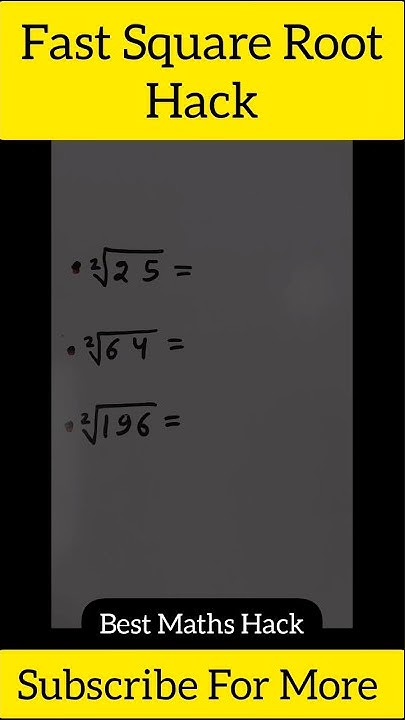 Fast Square Root
Hack
• ²√25 =
• ²√64 =
• ²√196 =
Best Maths Hack
Subscribe For More